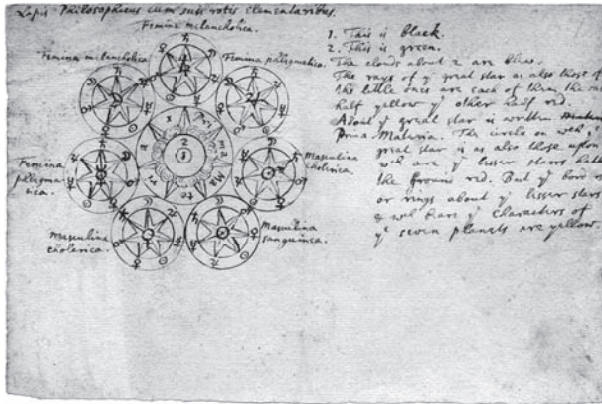 Lapis Philosophicus cum suis rotis elementaribus.
Femina melancholica.
Femina melancholica
Femina phlegmatica.
Femina
phlegma
tica.
Masculina
cholerica.
Masculina
cholerica.
Masculina
sanguinea.
Pri ma Ma te ri a
2
1
1. This is black.
2. This is green.
The clouds about 2 are blew.
The rays of ye great star as also those of
the little ones are each of them the one
half yellow ye other half red.
About ye great star is written
Prima Materia. The circle on wch ye
great star is as also those upon
wch are ye lesser starrs
the ground red. But ye
or rings about ye lesser stars
& wch beare ye characters of
ye seven planets are yellow.